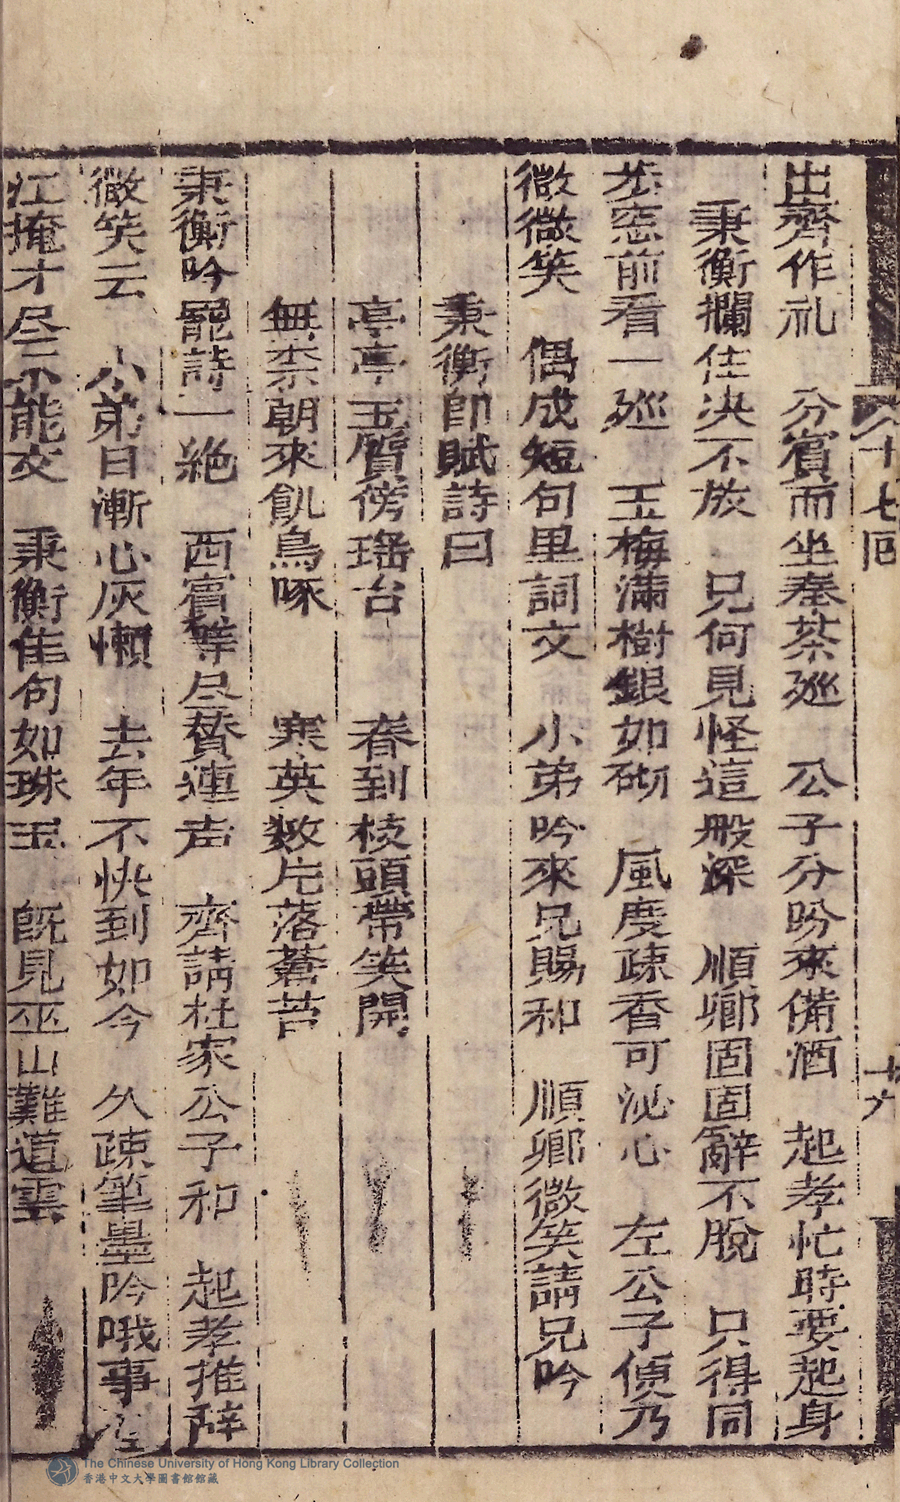 八十七回
十六
出齊作礼　分賓而坐奉茶廵　公子分吩來備酒　起孝忙時要起身
秉衡攔住决不放　兄何見怪這般深　順卿固固辭不脫　只得同
步窓前看一廵　玉梅滿樹銀如砌　風度疎香可泌心　左公子便乃
微微笑　偶成短句里詞文　小弟吟來兄賜和　順卿微笑請兄吟
秉衡即賦詩曰
亭亭玉質傍瑶台　春到枝頭帶笑開
無柰朝來飢鳥啄　寒英数片落蒼苔
秉衡吟罷詩一絶　西賓等尽賛連声　齊請杜家公子和　起孝推辞
微笑云　小弟日漸心灰懶　去年不快到如今　久疎筆墨吟哦事
江掩才尽不能文　秉衡佳句如珠玉　旣見巫山難道雲
The Chinese University of Hong Kong Library Collection
香港中文大學圖書館館藏